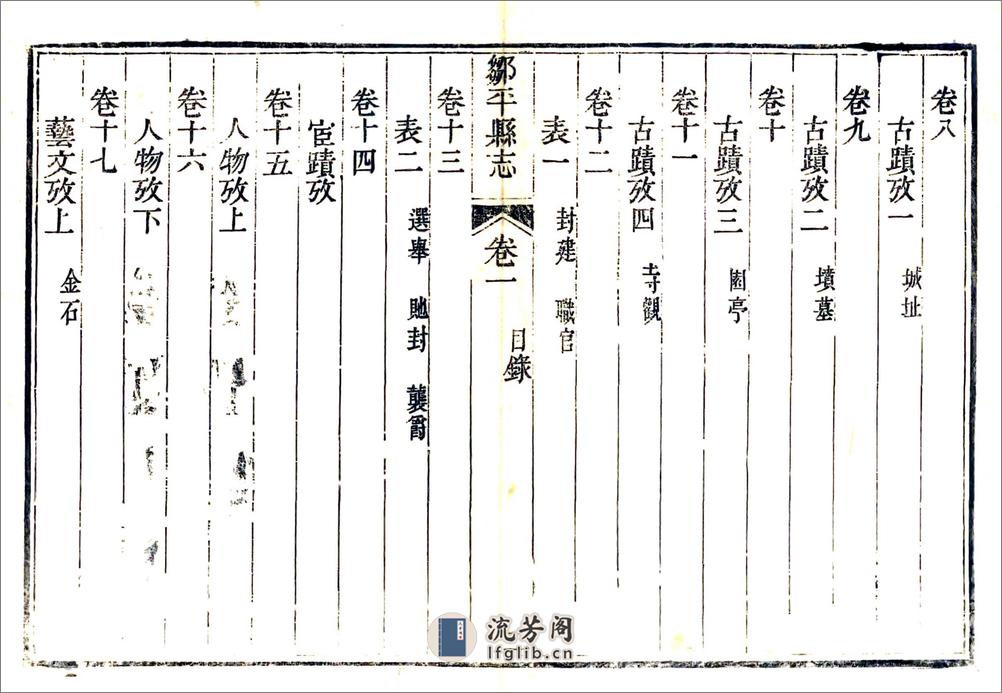 卷八
古蹟攷一 城址
卷九
古蹟攷二 墳墓
卷十
古蹟攷三 園亭
卷十一
古蹟攷四 寺觀
卷十二
表一 封建 職官
鄒平縣志 卷一 目錄
卷十三
表二 選舉 貤封 襲爵
卷十四
宦蹟攷
卷十五
人物攷上
卷十六
人物攷下
卷十七
藝文攷上 金石
流芳阁
lfglib.cn